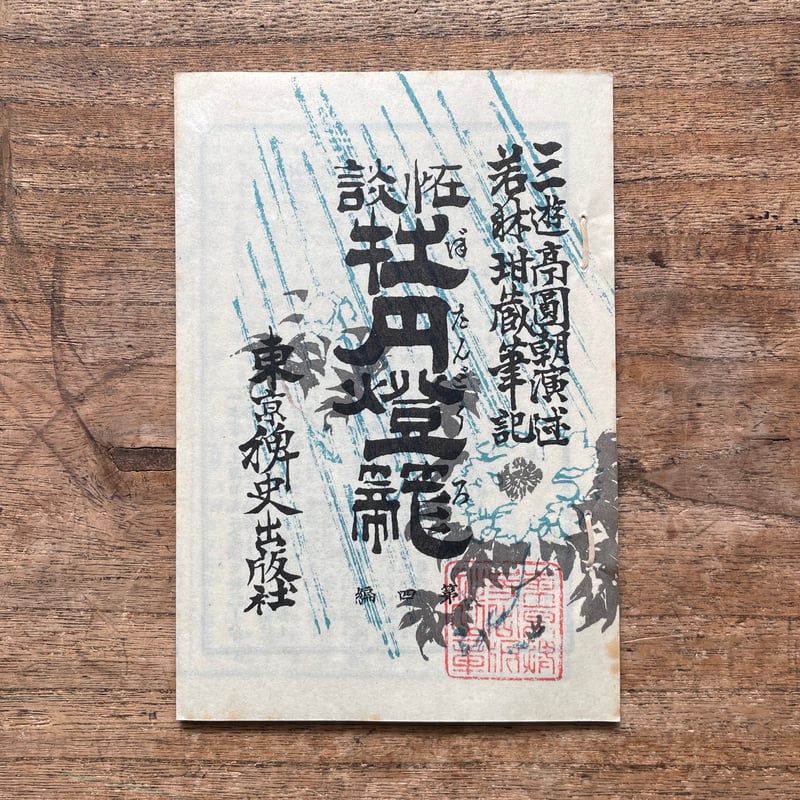 三遊亭圓朝演述
若林玵蔵筆記
怪談
牡丹燈籠
ぼたんどうろう
第四編
東京稗史出版社